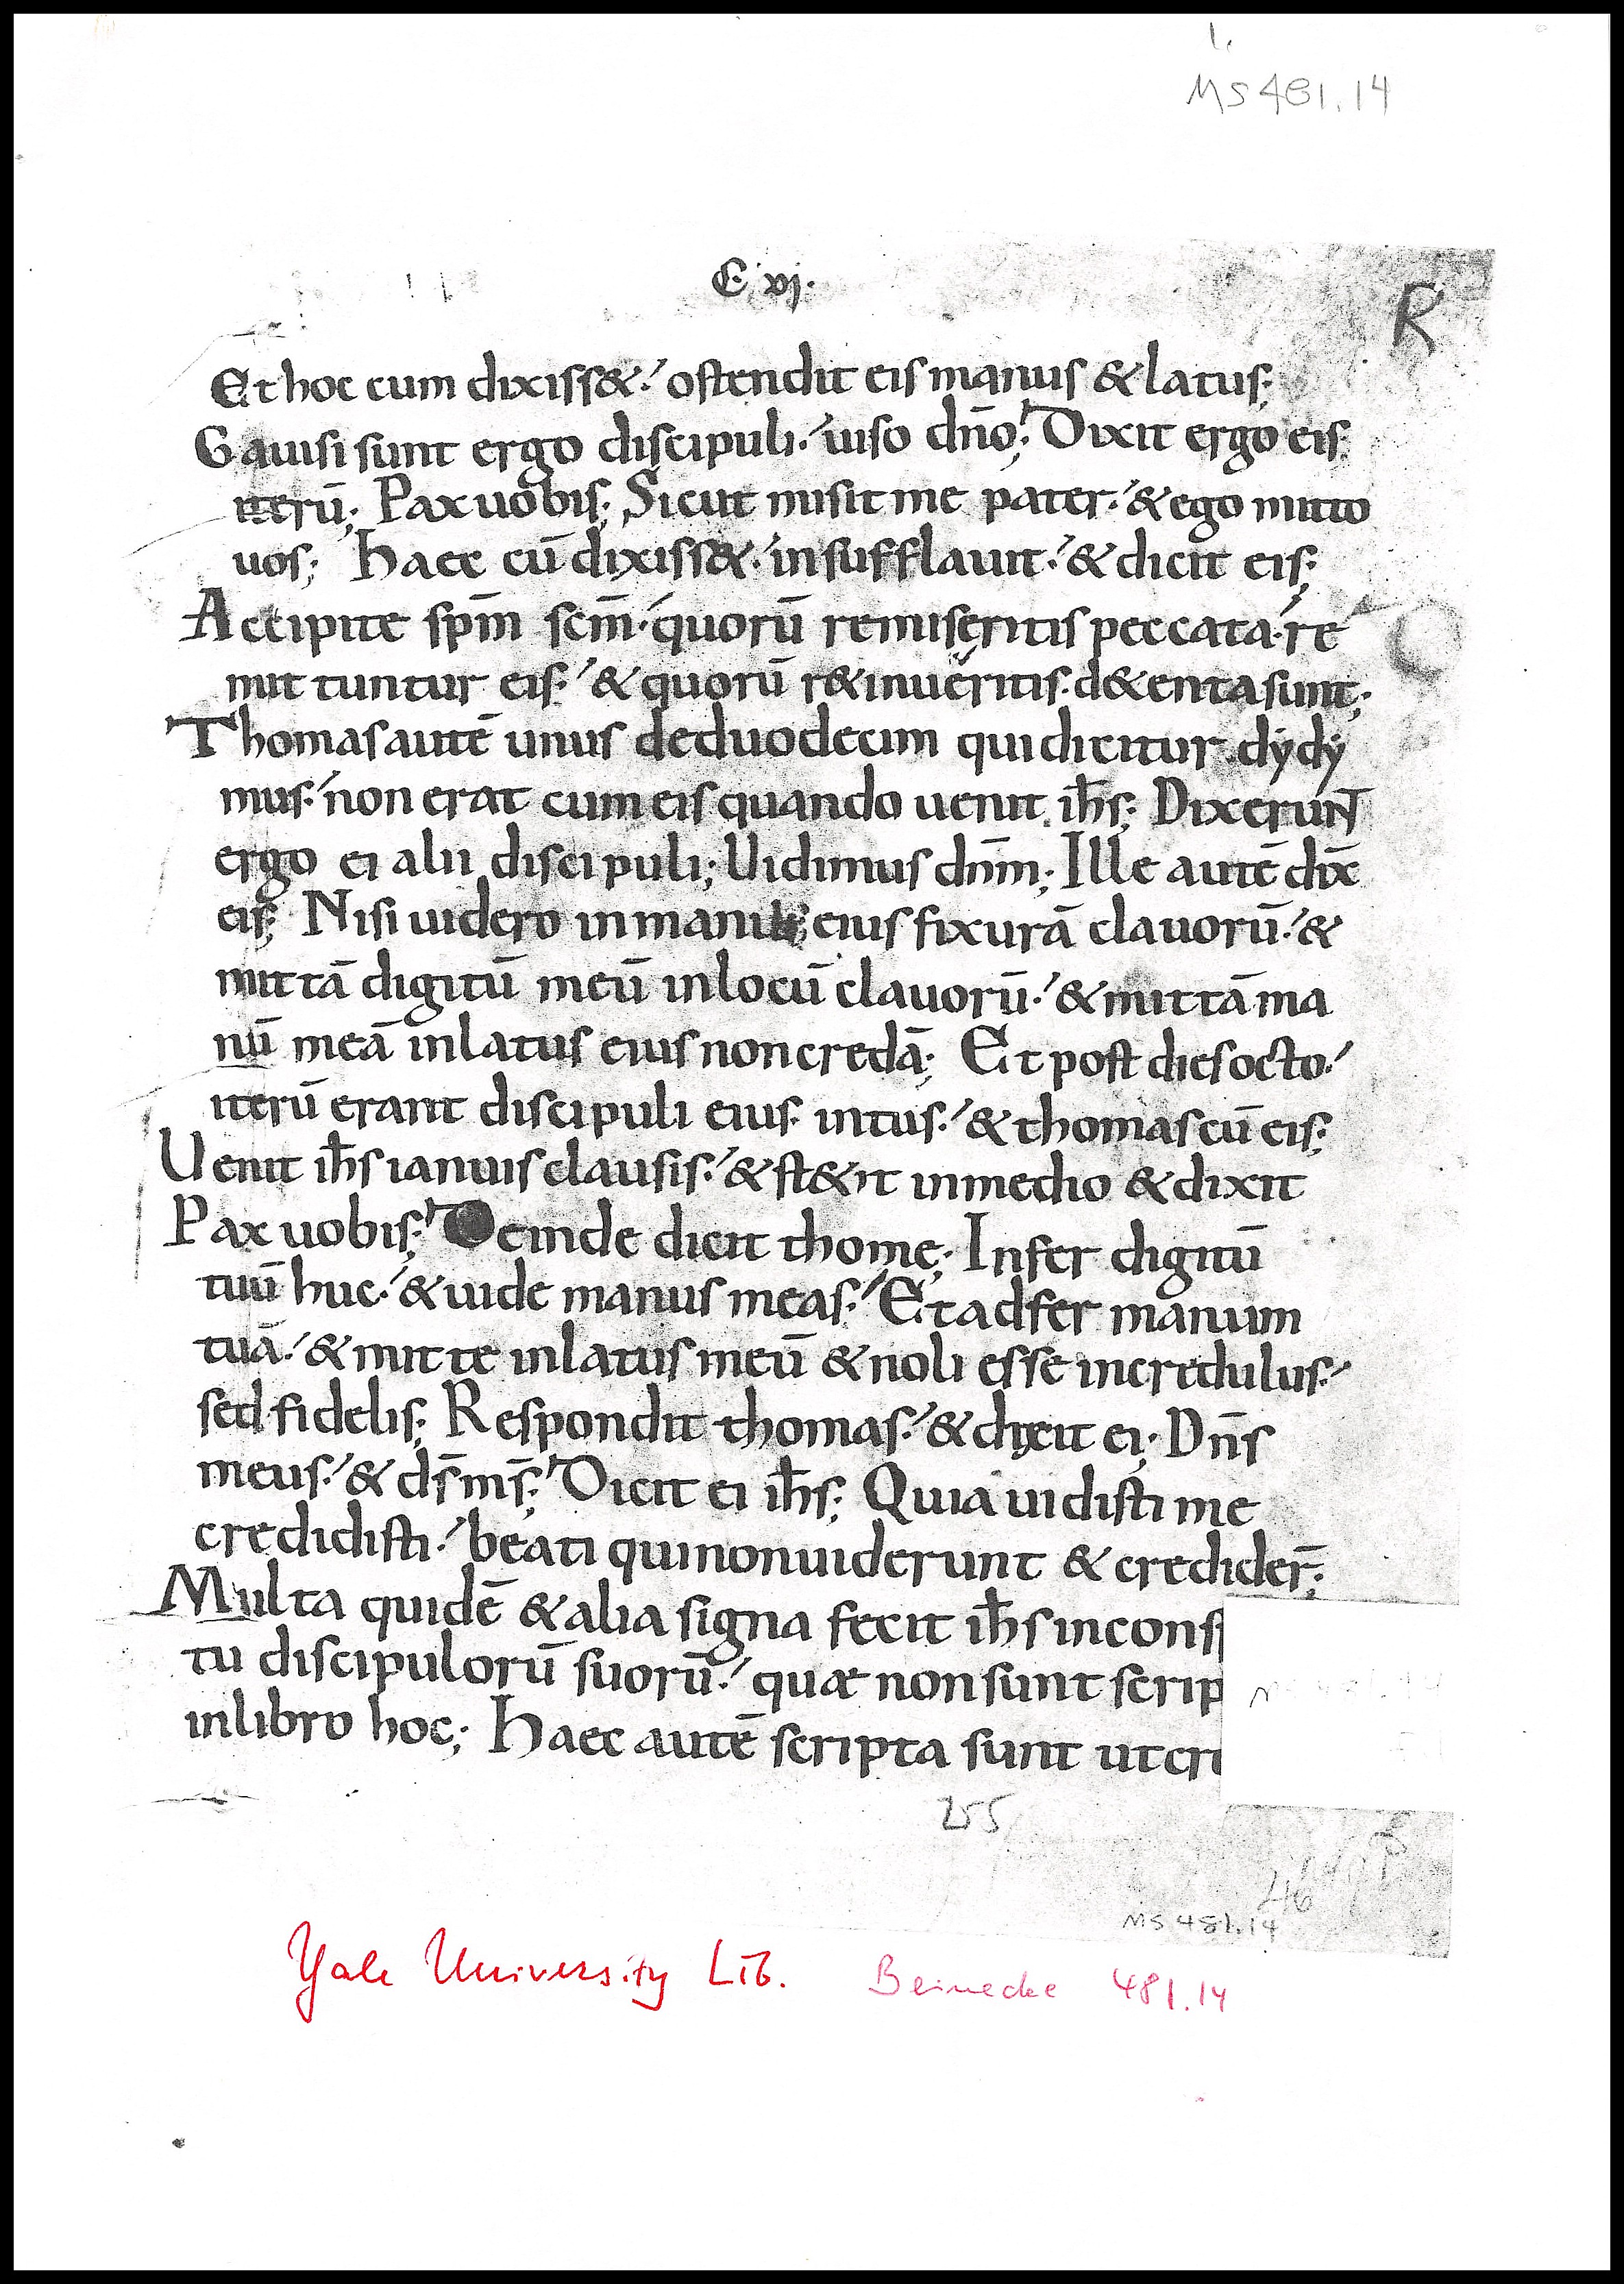 1.
MS 481.14
C. vj.
R
Et hoc cum dixiss&˙ ostendit eis manus & latus;
Gauisi sunt ergo discipuli˙ uiso dn̄o; Dixit ergo eis
iterū; Pax uobis; Sicut misit me pater˙ & ego mitto
uos; Haec cū dixiss&˙ insufflauit˙ & dicit eis;
Accipite sp̄m sc̄m˙ quorū remiseritis peccata˙ re
mittuntur eis˙ & quorū r&inueritis˙ d&enta sunt;
Thomas autē unus de duodecim qui dicitur dẏdẏ
mus˙ non erat cum eis quando uenit ih̄s; Dixerunt
ergo ei alii discipuli; Uidimus dn̄m; Ille autē dix̄
eis; Nisi uidero in manib; eius fixurā clauorū˙ &
mittā digitū meū in locū clauorū˙ & mittā ma
nū meā in latus eius non credā; Et post dies octo˙
iterū erant discipuli eius intus˙ & thomas cū eis;
Uenit ih̄s ianuis clausis˙ & st&it in medio & dixit
Pax uobis; Deinde dicit thomę; Infer digitū
tuū huc˙ & uide manus meas˙ Et adfer manum
tuā˙ & mitte in latus meū & noli esse incredulus˙
sed fidelis; Respondit thomas˙ & dixit ei; Dn̄s
meus˙ & ds̄ ms̄; Dicit ei ih̄s; Quia uidisti me
credidisti˙ beati qui non uiderunt & credider̄;
Multa quidē & alia signa fecit ih̄s in consp
tu discipulorū suorū˙ quæ non sunt scrip
in libro hoc; Haec autē scripta sunt ut cre
255
46
MS 481.14
Yale University Lib. Beinecke 481.14